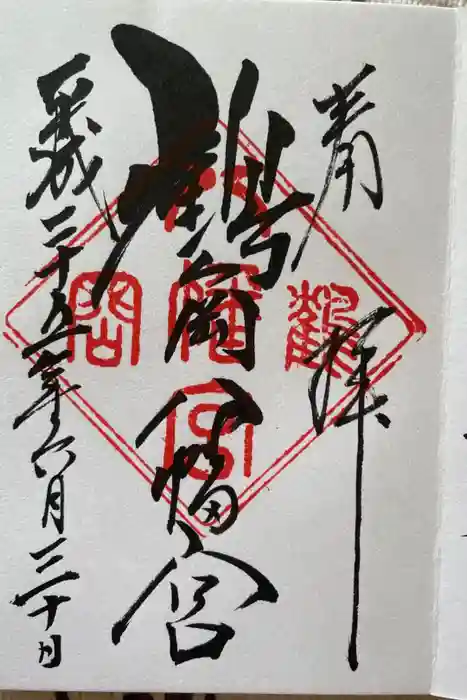 奉拝
鶴岡八幡宮
平成二十五年六月三十日
鶴岡八幡宮